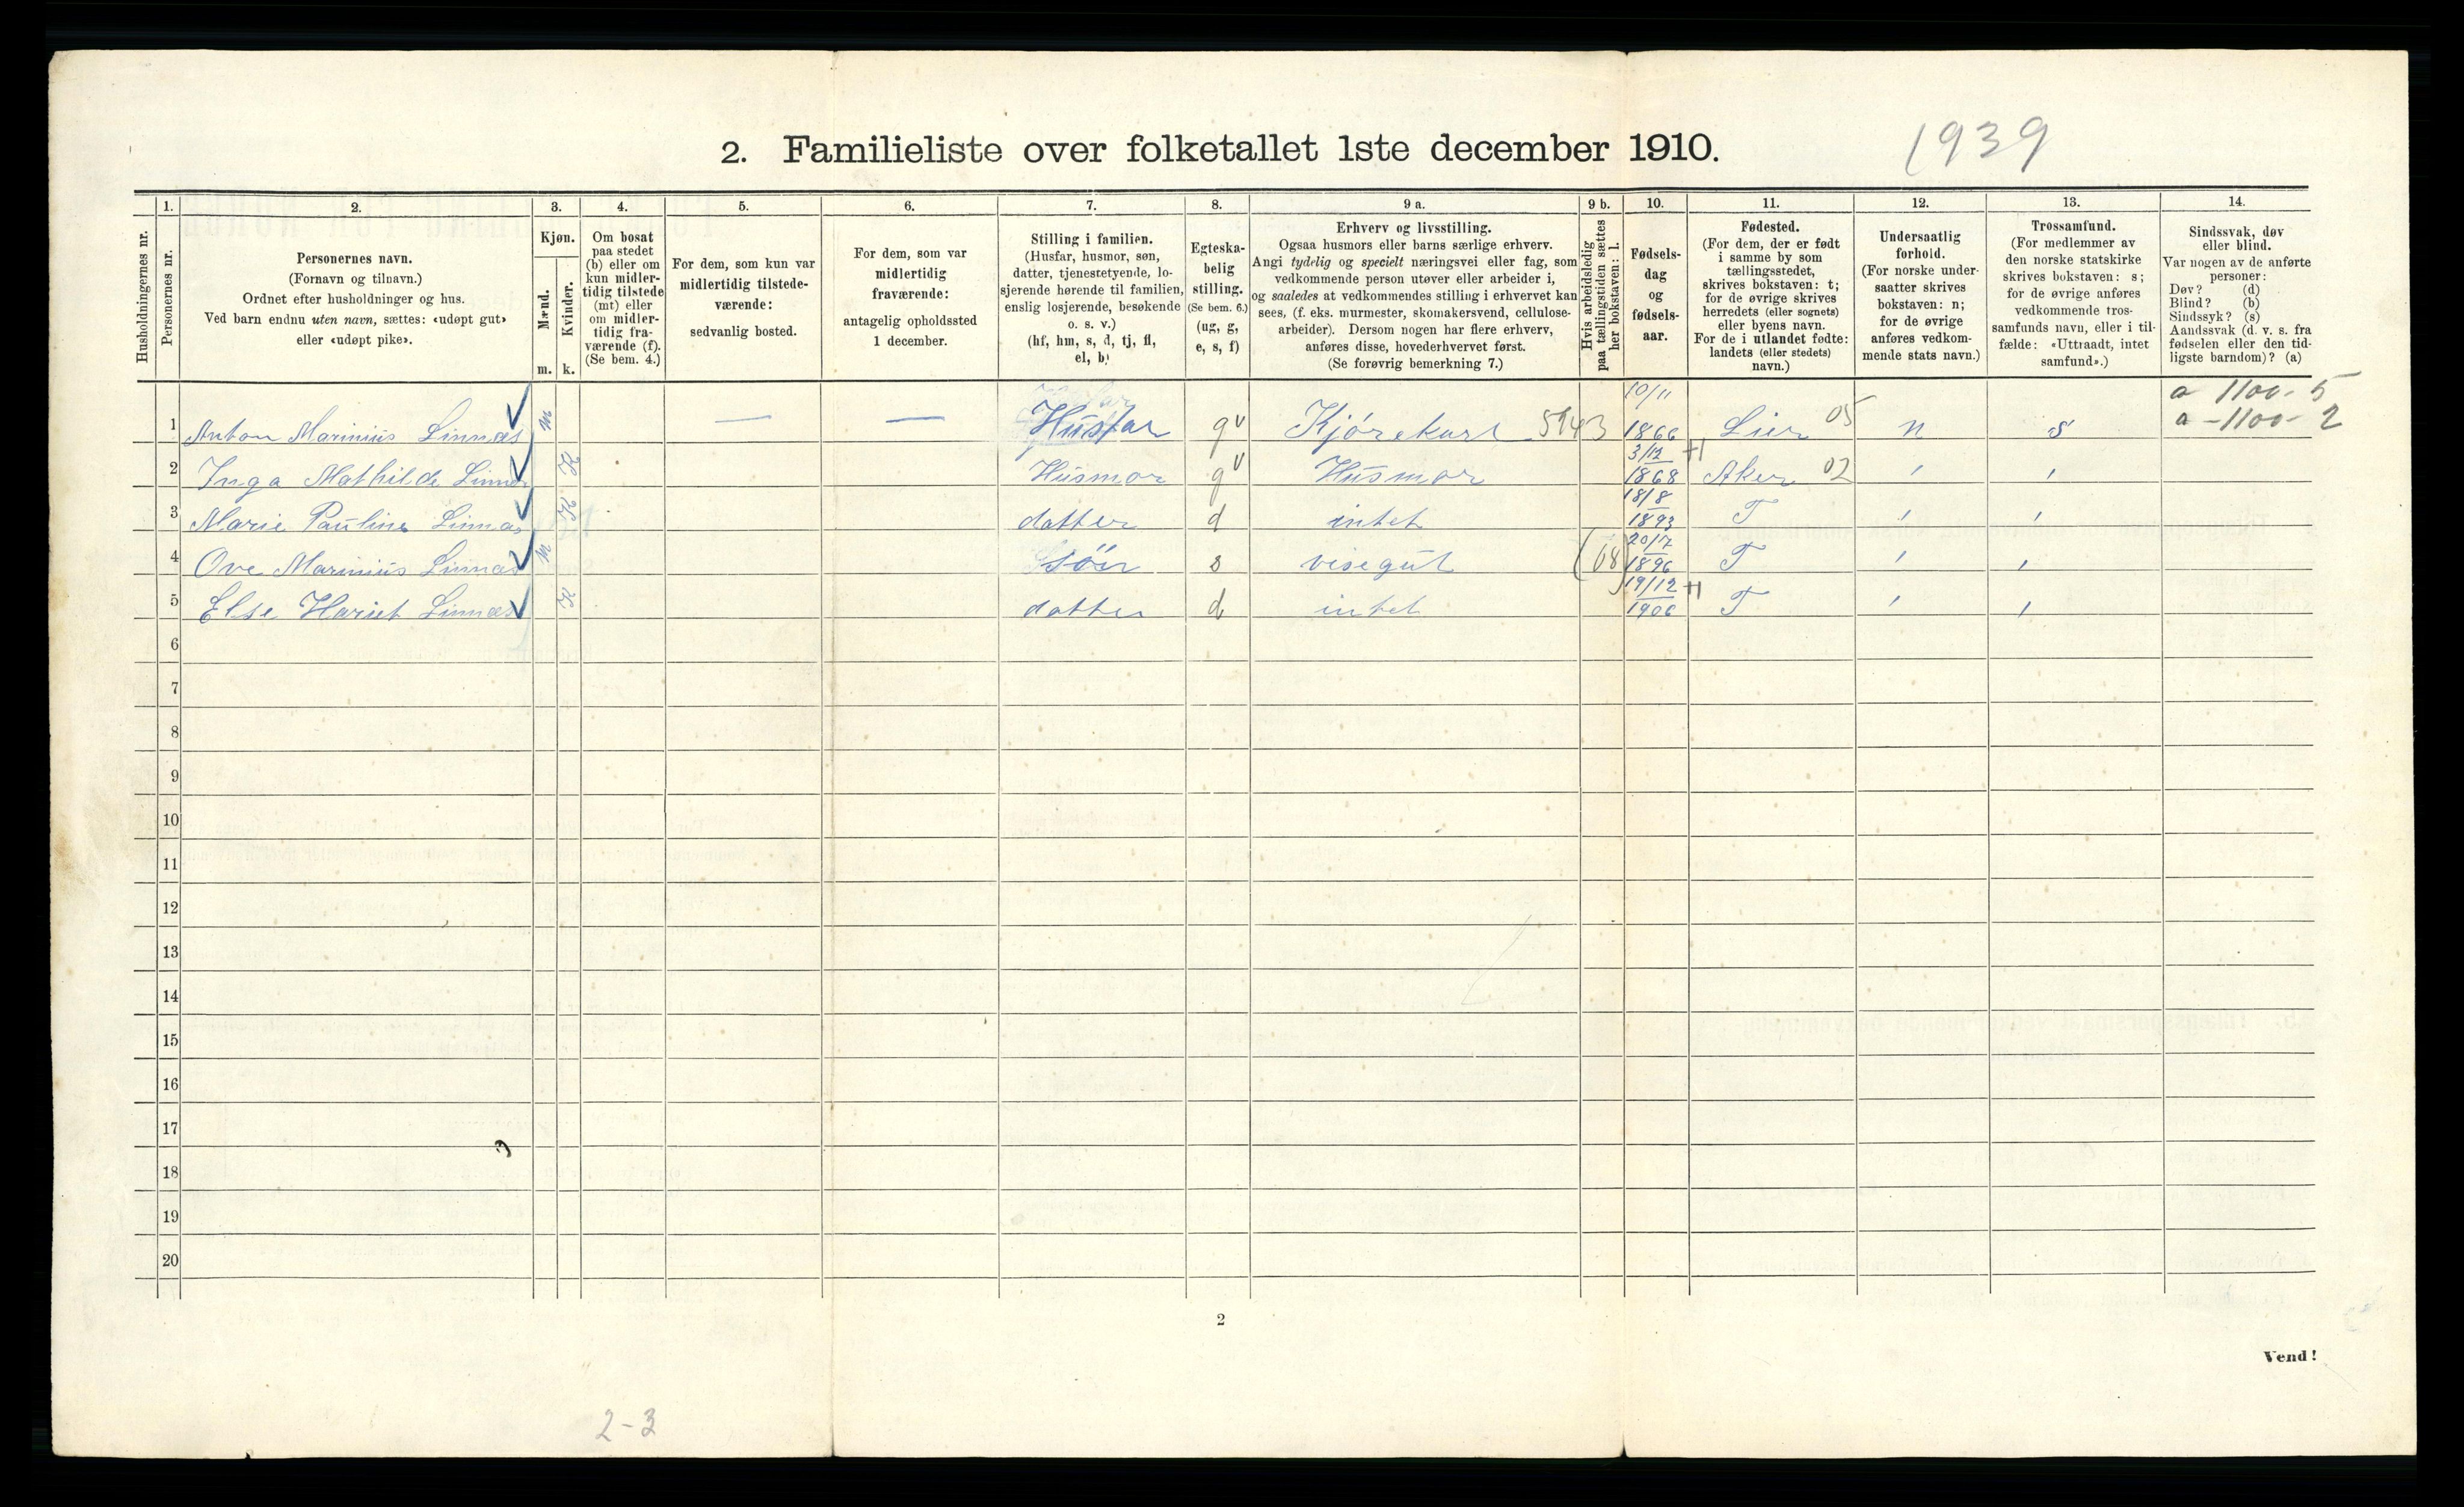 2. Familieliste over folketallet 1ste december 1910.
1939
1. 2. 3. 4. 5. 6. 7. 8. 9 a. 9 b. 10. 11. 12. 13. 14.
Husholdningernes nr.
Personernes nr.
Personernes navn.
(Fornavn og tilnavn.)
Ordnet efter husholdninger og hus.
Ved barn endnu uten navn, sættes: «udøpt gut»
eller «udøpt pike».
Kjøn.
Mænd.
Kvinder.
m. k.
Om bosat
paa stedet
(b) eller om
kun midler-
tidig tilstede
(mt) eller
om midler-
tidig fra-
værende (f).
(Se bem. 4.)
For dem, som kun var
midlertidig tilstede-
værende:
sedvanlig bosted.
For dem, som var
midlertidig
fraværende:
antagelig opholdssted
1 december.
Stilling i familien.
(Husfar, husmor, søn,
datter, tjenestetyende, lo-
sjerende hørende til familien,
enslig losjerende, besøkende
o. s. v.)
(hf, hm, s, d, tj, fl,
el, b)
Egteska-
belig
stilling.
(Se bem. 6.)
(ug, g,
e, s, f)
Erhverv og livsstilling.
Ogsaa husmors eller barns særlige erhverv.
Angi tydelig og specielt næringsvei eller fag, som
vedkommende person utøver eller arbeider i,
og saaledes at vedkommendes stilling i erhvervet kan
sees, (f. eks. murmester, skomakersvend, cellulose-
arbeider). Dersom nogen har flere erhverv,
anføres disse, hovederhvervet først.
(Se forøvrig bemerkning 7.)
Hvis arbeidsledig
paa tællingstiden sættes
her bokstaven: l.
Fødsels-
dag
og
fødsels-
aar.
Fødested.
(For dem, der er født
i samme by som
tællingsstedet,
skrives bokstaven: t;
for de øvrige skrives
herredets (eller sognets)
eller byens navn.
For de i utlandet fødte:
landets (eller stedets)
navn.)
Undersaatlig
forhold.
(For norske under-
saatter skrives
bokstaven: n;
for de øvrige
anføres vedkom-
mende stats navn.)
Trossamfund.
(For medlemmer av
den norske statskirke
skrives bokstaven: s;
for de øvrige anføres
vedkommende tros-
samfunds navn, eller i til-
fælde: «Uttraadt, intet
samfund».)
Sindssvak, døv
eller blind.
Var nogen av de anførte
personer:
Døv? (d)
Blind? (b)
Sindssyk? (s)
Aandssvak (d. v. s. fra
fødselen eller den tid-
ligste barndom)? (a)
a 1100-5
a -1100-2
1 Anton Marinius Linnæs m — — Husfar g Kjørekarl 5143 10/11 1866 Lier 05 n s
2 Inga Mathilde Linnæs K Husmor g Husmor 3/12 1868 Aker 02 ' '
3 Marie Pauline Linnæs K datter d intet 18/8 1893 T ' '
4 Ove Marinius Linnæs m sön s visegut (08) 20/7 1896 T ' '
5 Else Hariet Linnæs K datter d intet 19/12 1906 T ' '
6
7
8
9
10
11
12
13
14
15
16
17
18
19
20
2
Vend!
2-3